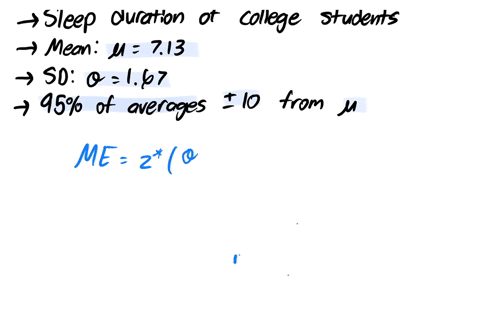 → Sleep duration of college students
→ Mean: μ = 7.13
→ SD: σ = 1.67
→ 95% of averages ±10 from μ
ME = z*(σ